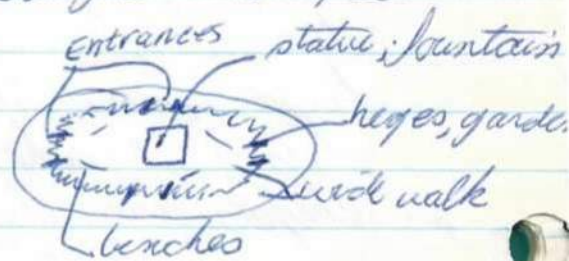 Entrances
statue; fountain
heges, garde
wide walk
benches